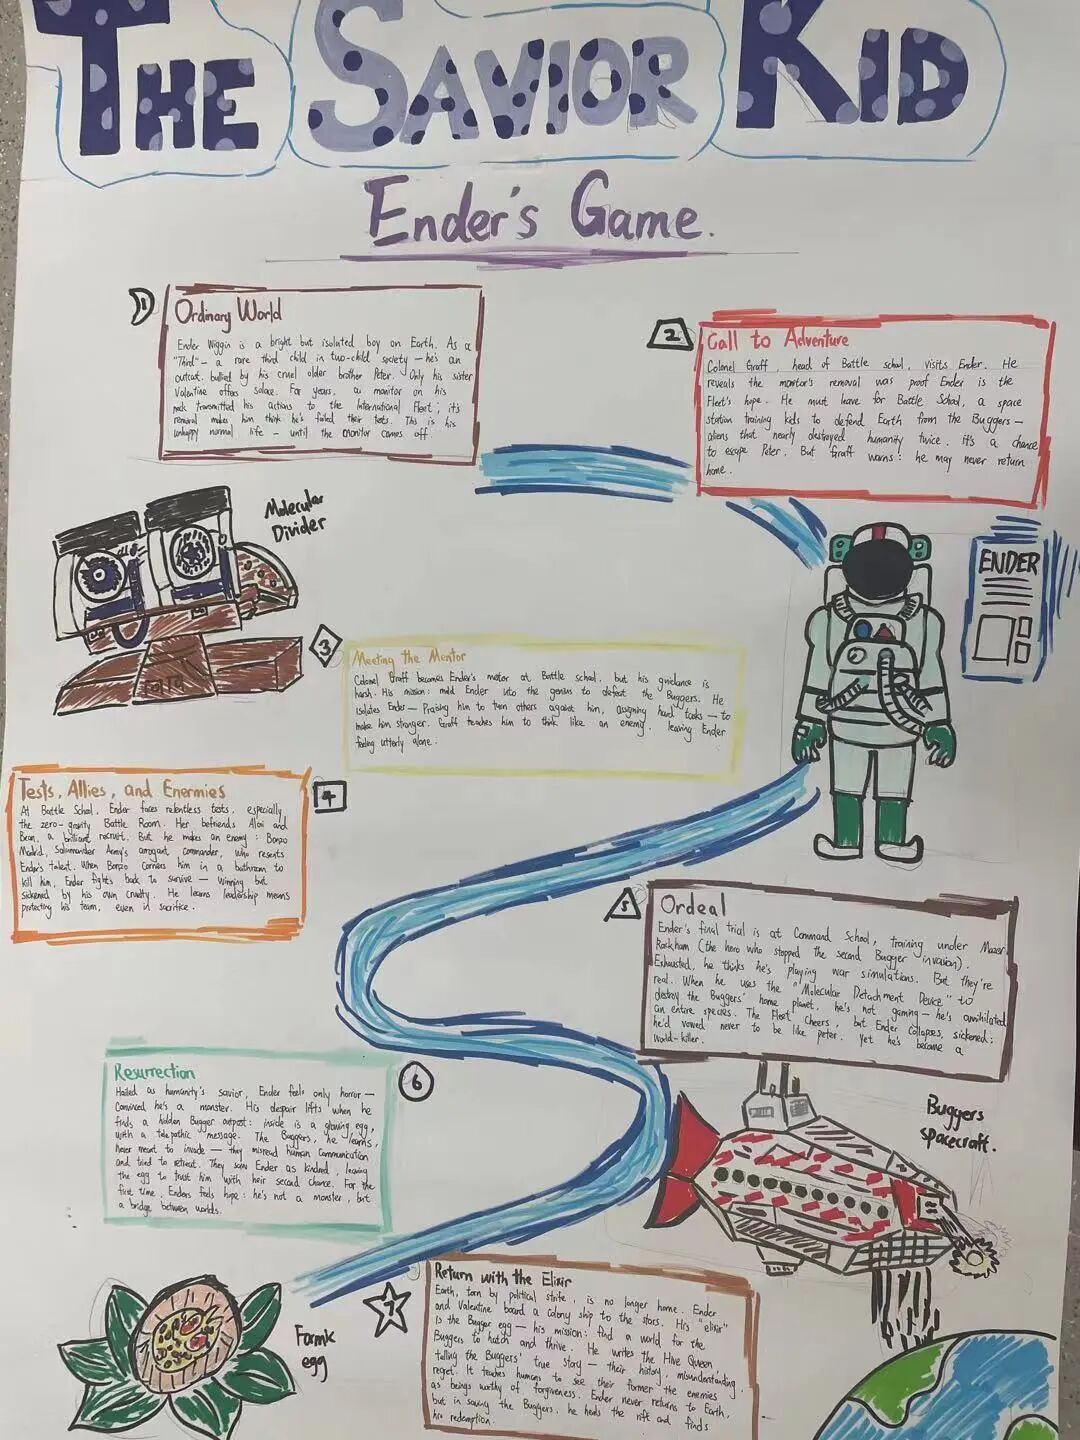 THE SAVIOR KID
Ender's Game.
1
Ordinary World
Ender Wiggin is a bright but isolated boy on Earth. As a
"Third" - a rare third child in two-child society - he's an
outcast. bullied by his cruel older brother Peter. Only his sister
Valentine offers solace. For years, a monitor on his
neck transmitted his actions to the International Fleet; it's
removal makes him think he's failed their tests. This is his
unhappy normal life - until the monitor comes off.
2
Call to Adventure
Colonel Graff, head of Battle school, visits Ender. He
reveals the monitor's removal was proof Ender is the
Fleet's hope. He must leave for Battle School, a space
station training kids to defend Earth from the Buggers -
aliens that nearly destroyed humanity twice. it's a chance
to escape Peter. But Graff warns: he may never return
home.
Molecular
Divider
ENDER
3
Meeting the Mentor
Colonel Graff becomes Ender's mentor at Battle school. but his guidance is
harsh. His mission: mold Ender into the genius to defeat the Buggers. He
isolates Ender - Praising him to turn others against him, assigning hard tasks - to
make him stronger. Graff teaches him to think like an enemy. leaving Ender
feeling utterly alone.
4
Tests, Allies, and Enermies
At Battle School, Ender faces relentless tests, especially
the zero-gravity Battle Room. Her befriends Alai and
Bean, a brilliant recruit. But he makes an enemy: Bonzo
Madrid, Salamander Army's arrogant, commander, who resents
Ender's talent. When Bonzo Corners him in a bathroom to
kill him, Ender fights back to survive - winning but
sickened by his own cruelty. He learns leadership means
protecting his team, even in sacrifice.
5
Ordeal
Ender's final trial is at Command School, training under Mazer
Rackham (the hero who stopped the second Bugger invasion).
Exhausted, he thinks he's playing war simulations. But they're
real. When he uses the "Molecular Detachment Device" to
destroy the Buggers' home planet, he's not gaming - he's annihilated
an entire species. The Fleet Cheers, but Ender Collapses, sickened:
he'd vowed never to be like peter. Yet he's become a
world-killer.
6
Resurrection
Hailed as humanity's savior, Ender feels only horror -
Convinced he's a monster. His despair lifts when he
finds a hidden Bugger outpost: inside is a glowing egg,
with a telepathic message. The Buggers, he learns,
never meant to invade - they misread human communication
and tried to retreat. They saw Ender as kindred, leaving
the egg to trust him with their second chance. For the
first time, Enders feels hope: he's not a monster, but
a bridge between worlds.
Buggers
spacecraft.
7
Return with the Elixir
Earth, torn by political strife, is no longer home. Ender
and Valentine board a colony ship to the stars. His "elixir"
is the Bugger egg - his mission: find a world for the
Buggers to hatch and thrive. He writes the Hive Queen
telling the Buggers' true story - their history, misunderstanding,
regret. It teaches humans to see their former the enemies
as beings worthy of forgiveness. Ender never returns to Earth,
but in saving the Buggers, he heals the rift and finds
his redemption.
egg